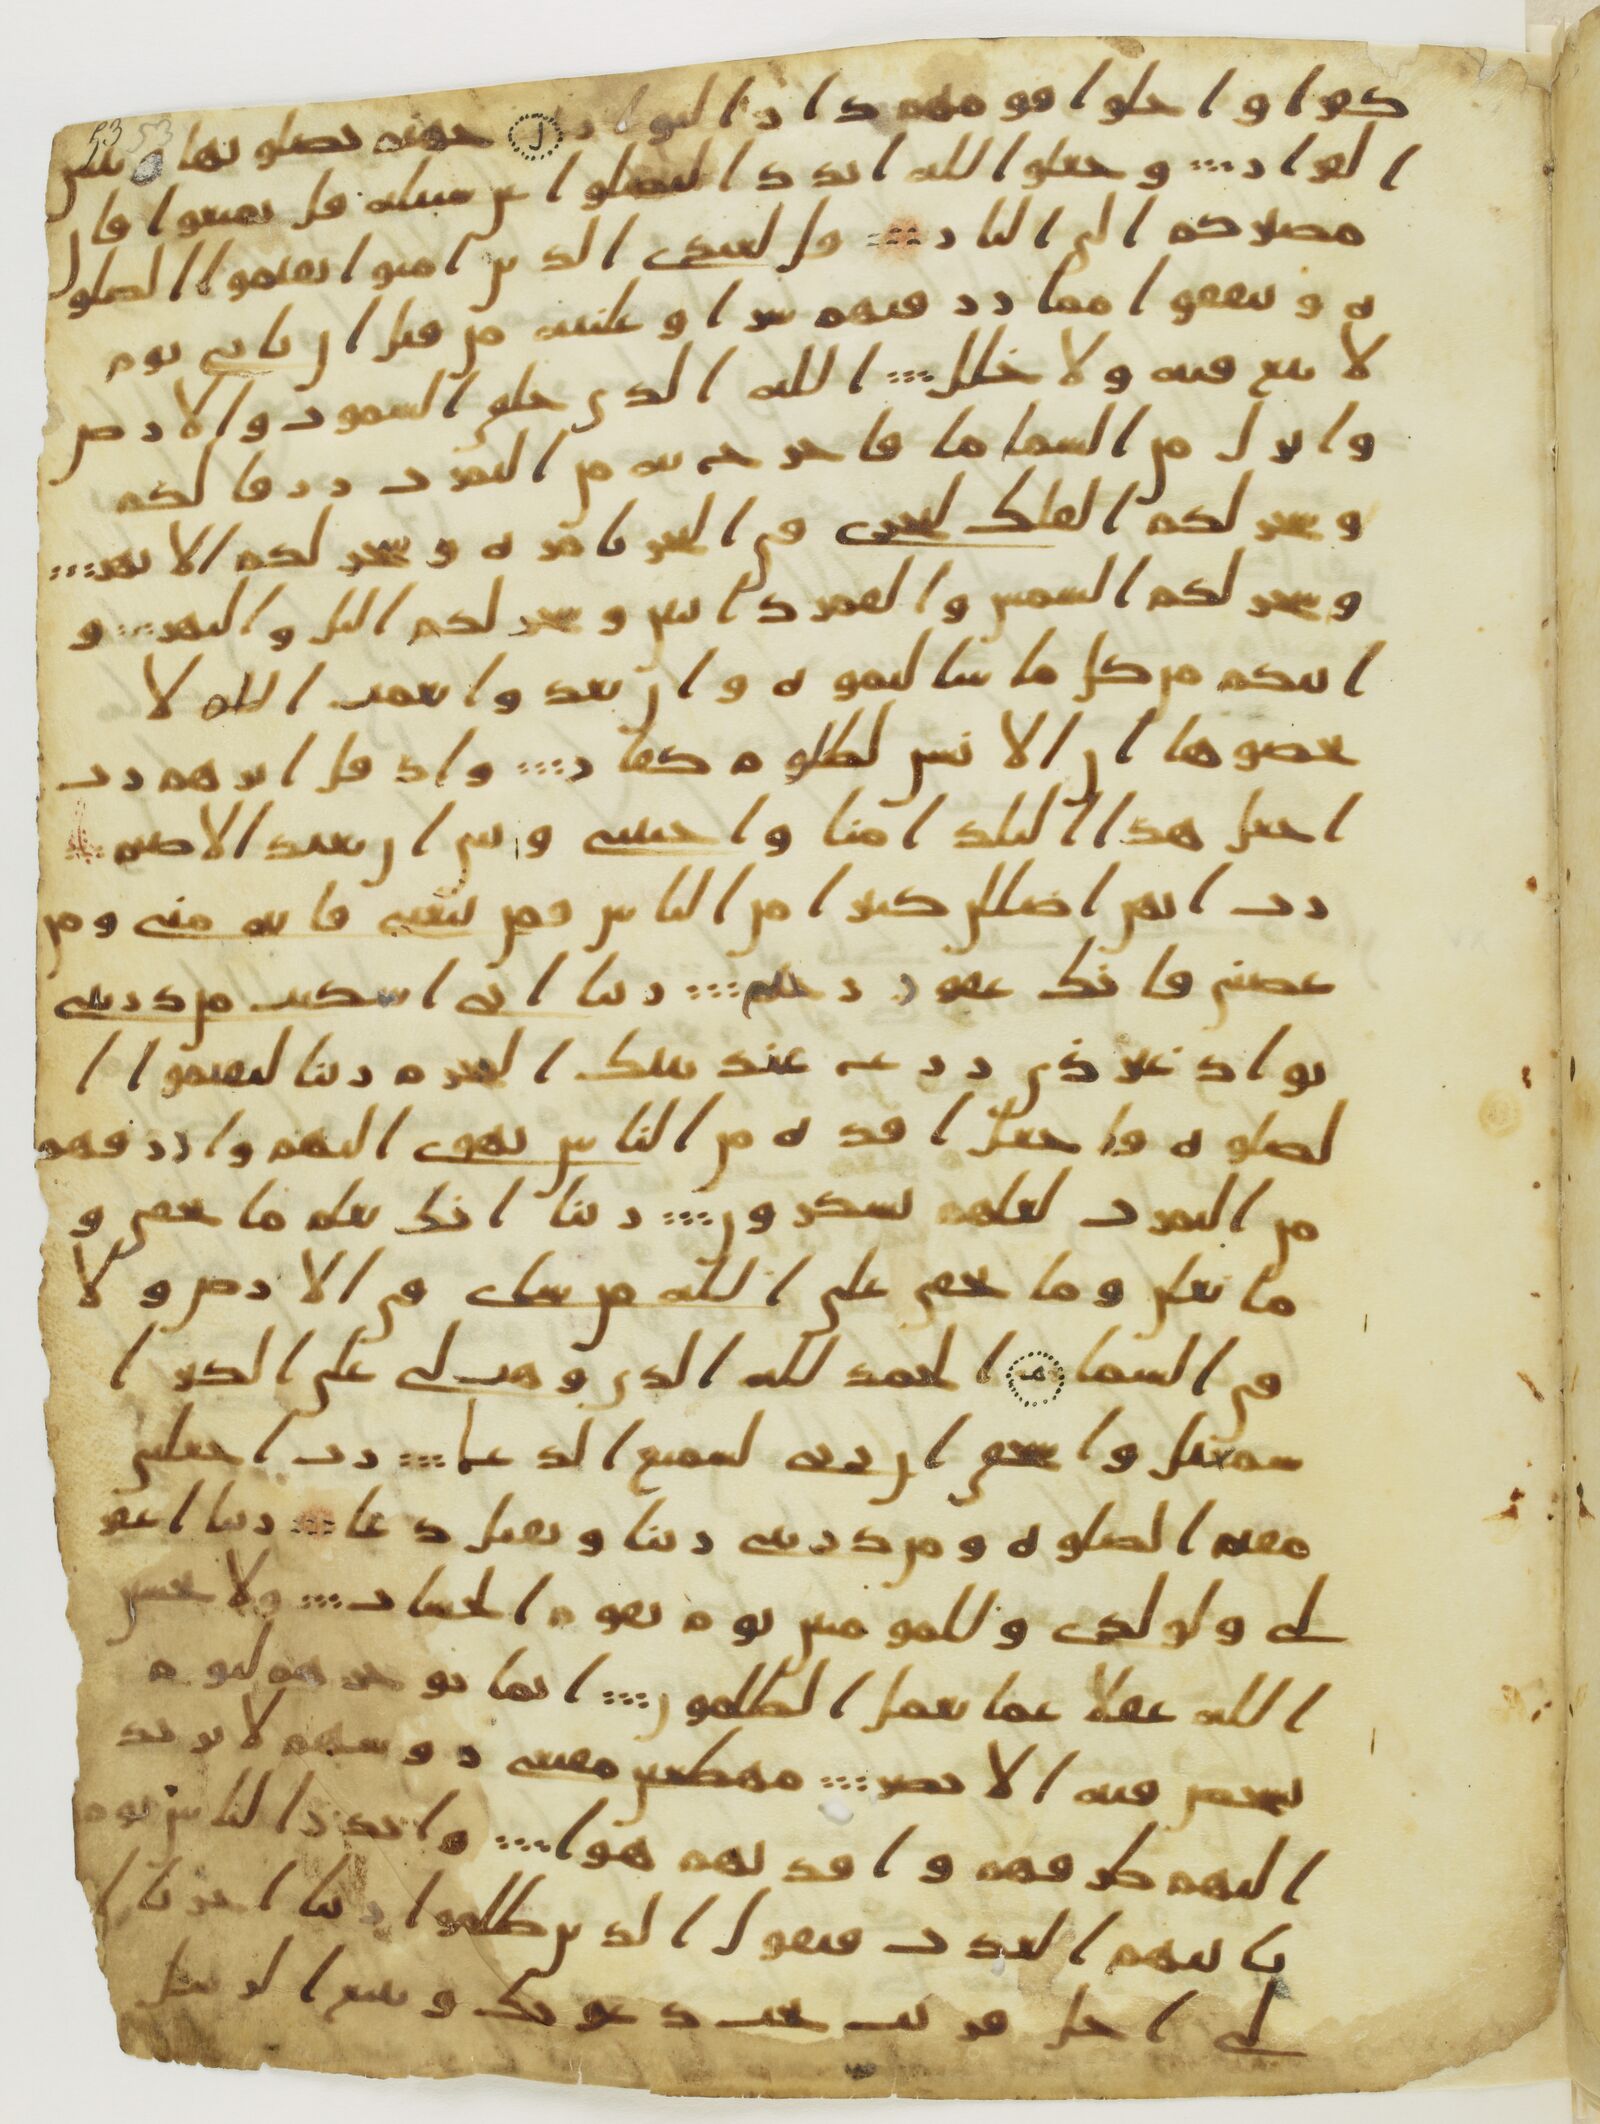 كفرا واحلوا قومهم دار البوار جهنم يصلونها وبئس
القرار ؞ وجعلوا لله اندادا ليضلوا عن سبيله قل تمتعوا فان
مصيركم الى النار ؞ قل لعبدى الذين امنوا يقيموا الصلو
ه وينفقوا مما رزقنهم سرا وعلنيه من قبل ان ياتى يوم
لا بيع فيه ولا خلل ؞ الله الذى خلق السموت والارض
وانزل من السما ما فاخرج به من الثمرت رزقا لكم
وسخر لكم الفلك لتجرى فى البحر بامره وسخر لكم الانهر ؞
وسخر لكم الشمس والقمر دائبين وسخر لكم اليل والنهر ؞ و
اتيكم من كل ما سالتموه وان تعدوا نعمت الله لا
تحصوها ان الانسن لظلوم كفار ؞ واذ قل ابرهم رب
اجعل هذا البلد امنا واجنبنى وبنى ان نعبد الاصنم ؞
رب انهن اضللن كثيرا من الناس فمن تبعنى فانه منى ومن
عصنى فانك غفور رحيم ؞ ربنا انى اسكنت من ذريتى
بواد غير ذى زرع عند بيتك المحرم ربنا ليقيموا ا
لصلوه فاجعل افده من الناس تهوى اليهم وارزقهم
من الثمرت لعلهم يشكرون ؞ ربنا انك تعلم ما نخفى و
ما نعلن وما يخفى على الله من شاى فى الارض ولا
فى السما الحمد لله الذى وهب لى على الكبر ا
سمعيل واسحق ان ربى لسميع الدعا ؞ رب اجعلنى
مقيم الصلوه ومن ذريتى ربنا وتقبل دعا ؞ ربنا اغفر
لى ولولدى وللمومنين يوم يقوم الحساب ؞ ولا تحسبن
الله غفلا عما يعمل الظلمون ؞ انما يوخرهم ليوم
تشخص فيه الابصر ؞ مهطعين مقنعى روسهم لا يرتد
اليهم طرفهم وافدتهم هوا ؞ وانذر الناس يوم
ياتيهم العذب فيقول الذين ظلموا ربنا اخرنا ا
لى اجل قريب نجب دعوتك ونتبع الرسل